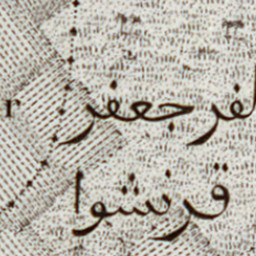 r
كفر جعفر
قرنشوا